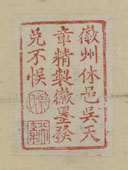 徽州休邑吳天
章精製徽墨發
兌不悞